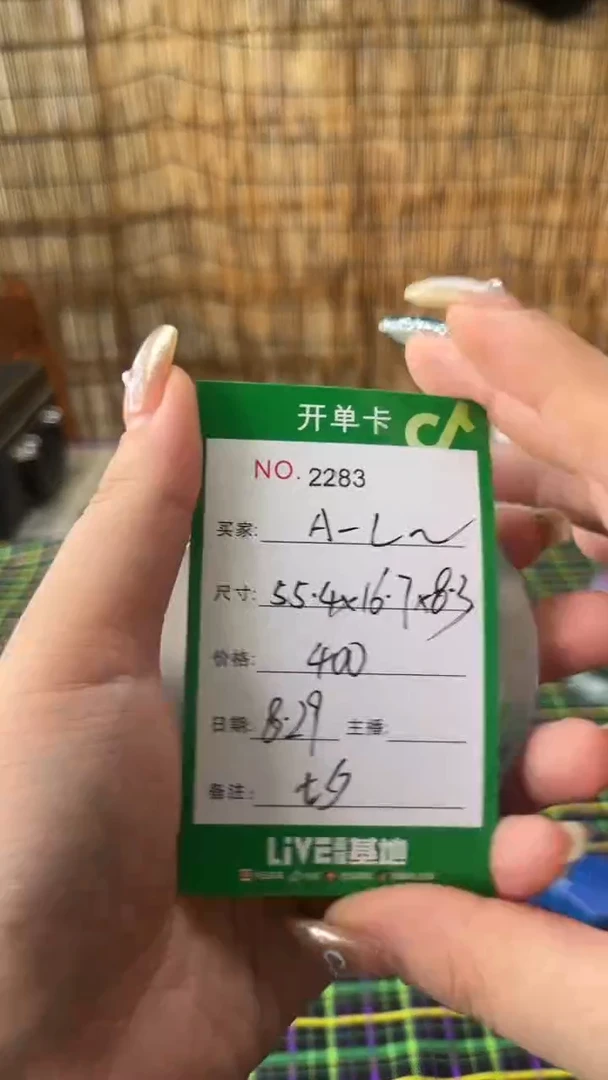 开单卡
NO. 2283
买家: A-L~
尺寸: 55.4x16.7x8.3
价格: 400
日期: 8.29 主播:
备注: t夕
LiVE 基地